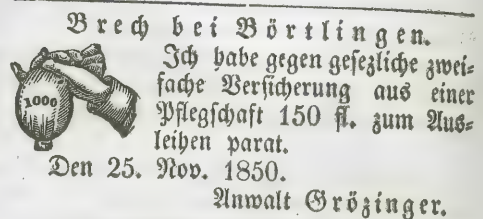 Brech bei Börtlingen.
Ich habe gegen gesezliche zwei-
fache Versicherung aus einer
Pflegschaft 150 fl. zum Aus-
leihen parat.
1000
Den 25. Nov. 1850.
Anwalt Grözinger.